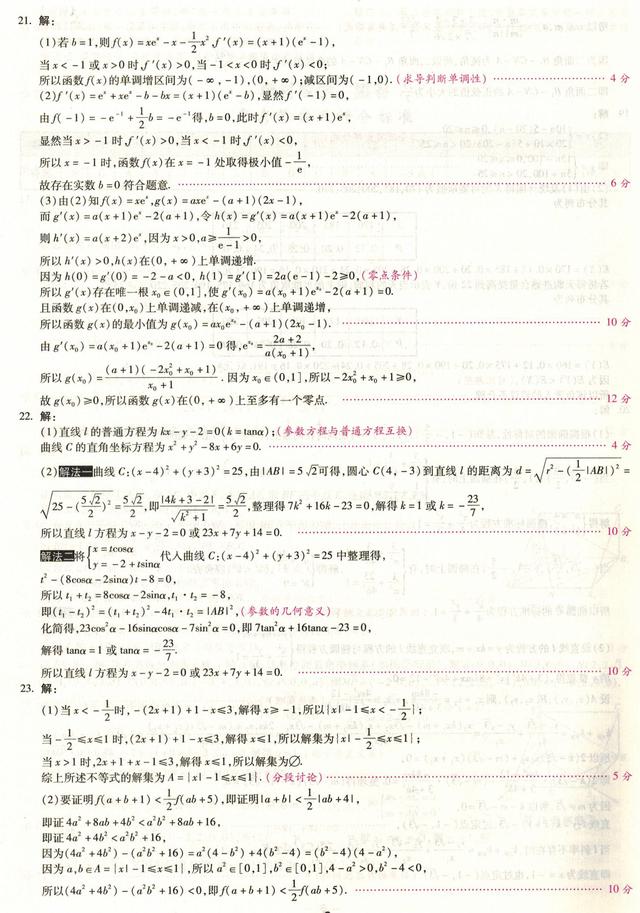 21. 解：
(1)若 b=1,则 f(x)=xeˣ-x-1/2x²,f'(x)=(x+1)(eˣ-1),
当 x<-1 或 x>0 时 f'(x)>0,当 -1<x<0 时 f'(x)<0;
所以函数 f(x) 的单调增区间为(-∞,-1),(0,+∞);减区间为(-1,0).(求导判断单调性) 4 分
(2)f'(x)=eˣ+xeˣ-b-bx=(x+1)(eˣ-b),显然 f'(-1)=0,
由 f(-1)=-e⁻¹+1/2b=-e⁻¹得,b=0,此时 f'(x)=(x+1)eˣ,
显然当 x>-1 时 f'(x)>0,当 x<-1 时 f'(x)<0,
所以 x=-1 时,函数 f(x) 在 x=-1 处取得极小值-1/e,
故存在实数 b=0 符合题意. 6 分
(3)由(2)知 f(x)=xeˣ,g(x)=axeˣ-(a+1)(2x-1),
而 g'(x)=a(x+1)eˣ-2(a+1),令 h(x)=g'(x)=a(x+1)eˣ-2(a+1),
则 h'(x)=a(x+2)eˣ,因为 x>0,a≥1/(e-1)>0,
所以 h'(x)>0,h(x)在(0,+∞)上单调递增.
因为 h(0)=g'(0)=-2-a<0,h(1)=g'(1)=2a(e-1)-2≥0,(零点条件)
所以 g'(x)存在唯一根 x₀∈(0,1],使 g'(x₀)=a(x₀+1)e^(x₀)-2(a+1)=0.
且函数 g(x)在(0,x₀)上单调递减,在(x₀,+∞)上单调递增,
所以函数 g(x)的最小值为 g(x₀)=ax₀e^(x₀)-(a+1)(2x₀-1). 10 分
由 g'(x₀)=a(x₀+1)e^(x₀)-2(a+1)=0 得,e^(x₀)=(2a+2)/(a(x₀+1)),
所以 g(x₀)=(a+1)(-2x₀²+x₀+1)/(x₀+1).因为 x₀∈(0,1],所以-2x₀²+x₀+1≥0,
故 g(x₀)≥0,所以函数 g(x)在(0,+∞)上至多有一个零点. 12 分
22. 解：
(1)直线 l 的普通方程为 kx-y-2=0(k=tanα);(参数方程与普通方程互换)
曲线 C 的直角坐标方程为 x²+y²-8x+6y=0. 4 分
(2)解法一曲线 C:(x-4)²+(y+3)²=25,由|AB|=5√2可得,圆心 C(4,-3)到直线 l 的距离为 d=√(r²-(1/2|AB|)²)=
√(25-(5√2/2)²)=5√2/2,即|4k+3-2|/√(k²+1)=5√2/2,整理得 7k²+16k-23=0,解得 k=1 或 k=-23/7,
所以直线 l 方程为 x-y-2=0 或 23x+7y+14=0. 10 分
解法二将{x=tcosα y=-2+tsinα 代入曲线 C:(x-4)²+(y+3)²=25 中整理得,
t²-(8cosα-2sinα)t-8=0,
所以 t₁+t₂=8cosα-2sinα,t₁·t₂=-8,
即(t₁-t₂)²=(t₁+t₂)²-4t₁·t₂=|AB|²,(参数的几何意义)
化简得,23cos²α-16sinαcosα-7sin²α=0,即 7tan²α+16tanα-23=0,
解得 tanα=1 或 tanα=-23/7.
所以直线 l 方程为 x-y-2=0 或 23x+7y+14=0. 10 分
23. 解：
(1)当 x<-1/2时,-(2x+1)+1-x≤3,解得 x≥-1,所以{x|-1≤x<-1/2};
当-1/2≤x≤1 时,(2x+1)+1-x≤3,解得 x≤1,所以解集为{x|-1/2≤x≤1};
当 x>1 时,2x+1+x-1≤3,解得 x≤1,所以解集为∅.
综上所述不等式的解集为 A={x|-1≤x≤1}.(分段讨论) 5 分
(2)要证明 f(a+b+1)<1/2f(ab+5),即证明|a+b|<1/2|ab+4|,
即证 4a²+8ab+4b²<a²b²+8ab+16,
即证 4a²+4b²<a²b²+16,
因为(4a²+4b²)-(a²b²+16)=a²(4-b²)+4(b²-4)=(b²-4)(4-a²),
因为 a,b∈A={x|-1≤x≤1},所以 a²∈[0,1],b²∈[0,1],4-a²>0,b²-4<0,
所以(4a²+4b²)-(a²b²+16)<0,即 f(a+b+1)<1/2f(ab+5). 10 分